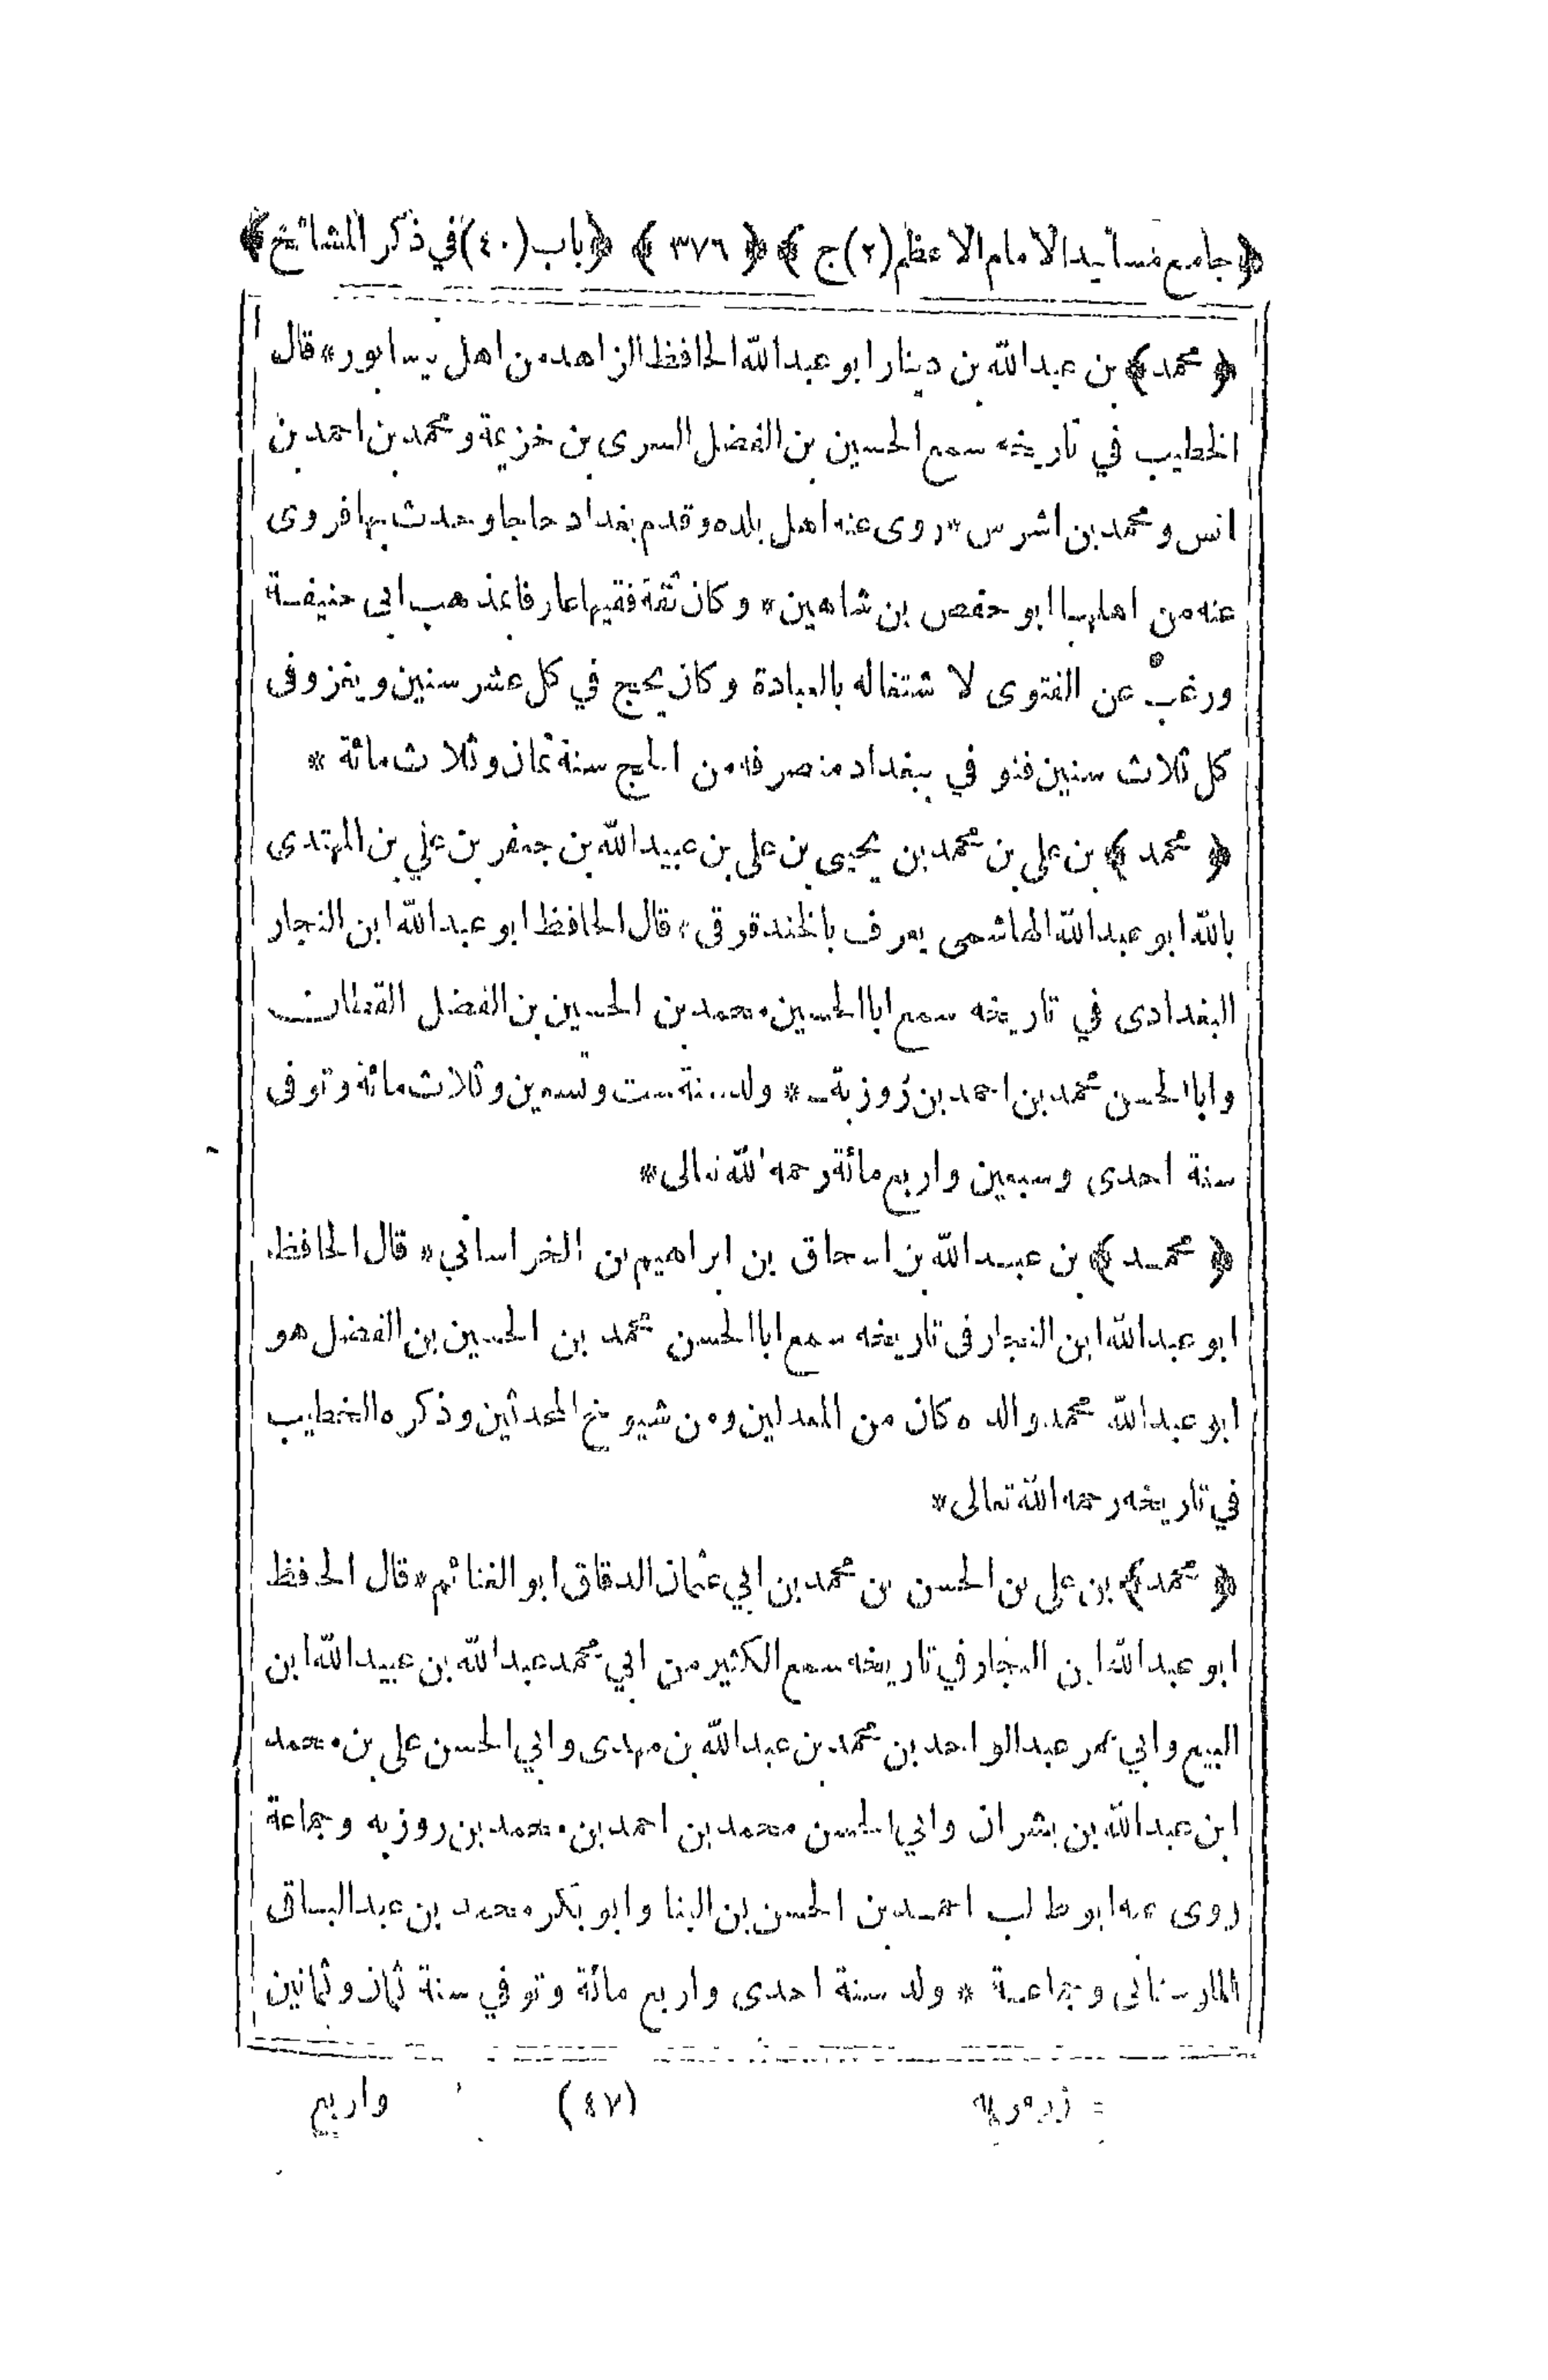 ﴿جامع مسانيد الامام الاعظم (٢) ج﴾ ﴿٣٧٦﴾ ﴿باب (٤٠) في ذكر المشائخ﴾
﴿محمد﴾ بن عبد الله بن دينار ابو عبد الله الحافظ الزاهد من اهل نيسابور * قال
الخطيب في تاريخه سمع الحسين بن الفضل السرى بن خزيمة و محمد بن احمد بن
انس و محمد بن اشرس * روى عنه اهل بلده وقدم بغداد حاجا وحدث بها فروى
عنه من اهلها ابو حفص بن شاهين * وكان ثقة فقيها عارفا بمذهب ابى حنيفة
ورغب عن الفتوى لاشتغاله بالعبادة وكان يحج في كل عشر سنين ويغزو فى
كل ثلاث سنين فتوفي ببغداد منصرفه من الحج سنة ثمان وثلاث مائة *
﴿محمد﴾ بن على بن محمد بن يحيى بن على بن عبيد الله بن جعفر بن علي بن المهتدى
بالله ابو عبد الله الهاشمى يعرف بالخندقوقى * قال الحافظ ابو عبد الله ابن النجار
البغدادى في تاريخه سمع ابا الحسين محمد بن الحسين بن الفضل القطان
وابا الحسن محمد بن احمد بن زوزبة * ولد سنة ست وتسعين وثلاث مائة وتوفى
سنة احدى وسبعين واربع مائة رحمه الله تعالى *
﴿محمد﴾ بن عبد الله بن اسحاق بن ابراهيم بن الخراساني * قال الحافظ
ابو عبد الله ابن النجار فى تاريخه سمع ابا الحسن محمد بن الحسين بن الفضل هو
ابو عبد الله محمد والده كان من المعدلين ومن شيوخ المحدثين وذكره الخطيب
في تاريخه رحمه الله تعالى *
﴿محمد﴾ بن على بن الحسن بن محمد بن ابي عثمان الدقاق ابو الغنائم * قال الحافظ
ابو عبد الله ابن النجار في تاريخه سمع الكثير من ابي محمد عبد الله بن عبيد الله ابن
البيع وابي عمر عبد الواحد بن محمد بن عبد الله بن مهدى وابي الحسن على بن محمد
ابن عبد الله بن بشران وابي الحسن محمد بن احمد بن محمد بن روزبه وجماعة
روى عنه ابو طالب احمد بن الحسن بن البنا وابو بكر محمد بن عبد الباقى
المارستانى وجماعة * ولد سنة احدى واربع مائة وتوفي سنة ثمان وثمانين
(٤٧) واربع